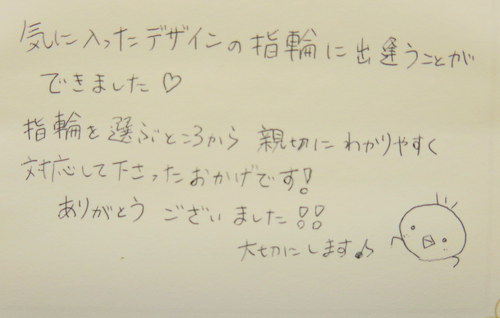 気に入ったデザインの指輪に出逢うことが
できました♡
指輪を選ぶところから 親切に わかりやすく
対応して下さったおかげです!
ありがとう ございました!!
大切にします♪